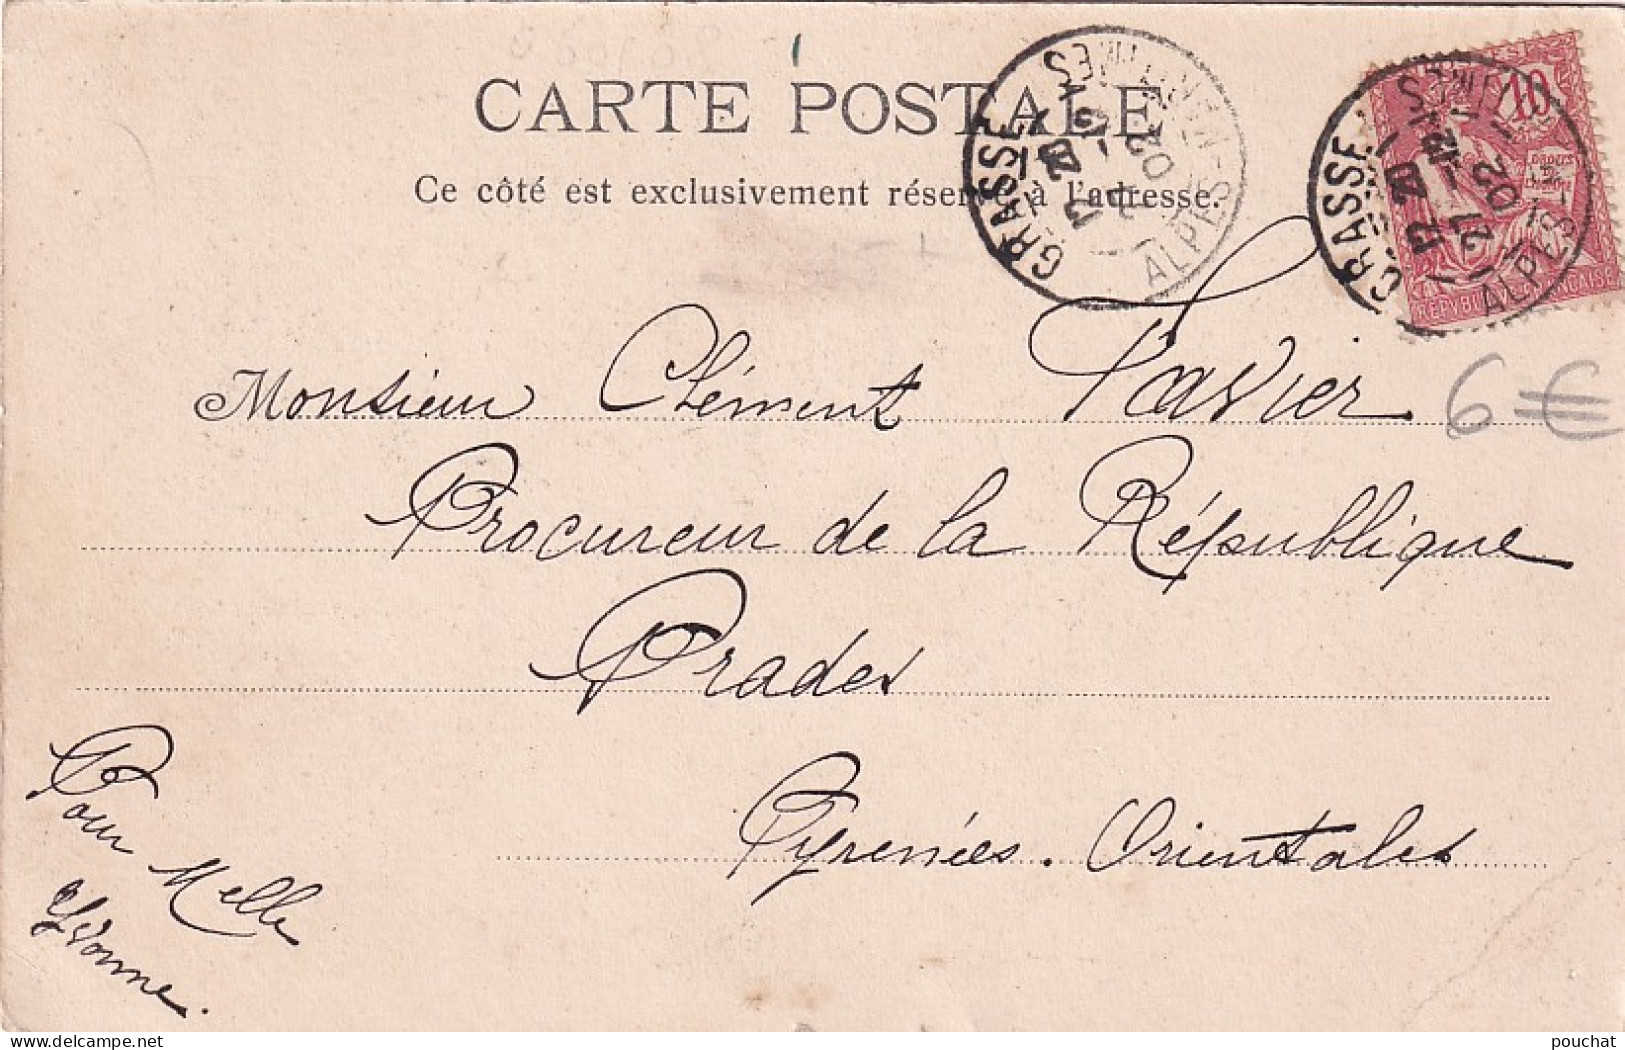 CARTE POSTALE
Ce côté est exclusivement réservé à l'adresse.
GRASSE
ALPES-MARITIMES
02
GRASSE
ALPES
21
02
10
REPVBLIQVE FRANÇAISE
Monsieur Clément Pavier
6 €
Procureur de la République
Prades
Pyrénées-Orientales
Pour Melle
Yvonne.
pouchat